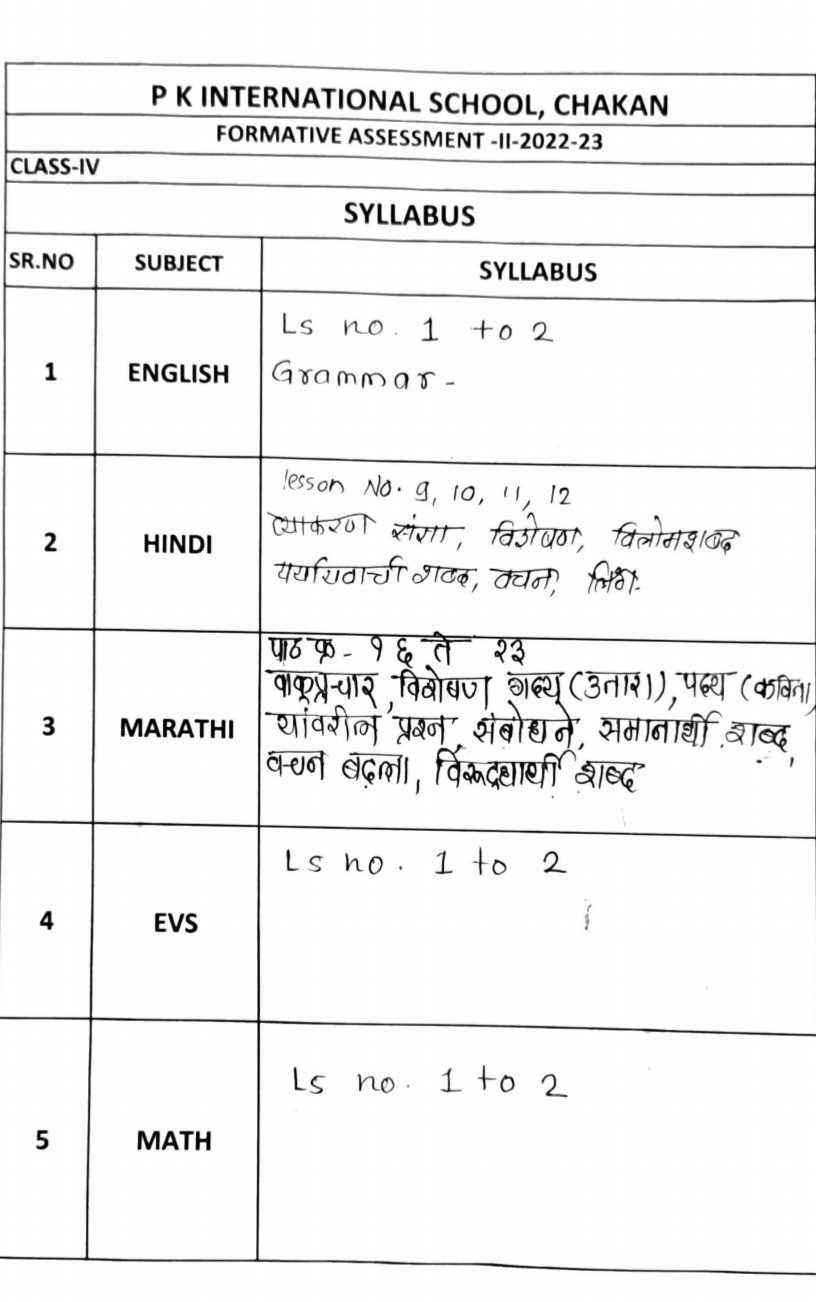 P K INTERNATIONAL SCHOOL, CHAKAN
FORMATIVE ASSESSMENT -II-2022-23
CLASS-IV
SYLLABUS
SR.NO SUBJECT SYLLABUS
1 ENGLISH
Ls no. 1 to 2
Grammar -
2 HINDI
lesson No. 9, 10, 11, 12
व्याकरण संज्ञा, विशेषण, विलोमशब्द
पर्यायवाची शब्द, वचन, लिंग.
3 MARATHI
पाठ क्र - १६ ते २३
वाक्प्रचार, विशेषण गद्य (उतारा), पद्य (कविता)
यांवरील प्रश्न, संबोधने, समानार्थी शब्द,
वचन बदला, विरूद्धार्थी शब्द
4 EVS
Ls no. 1 to 2
5 MATH
Ls no. 1 to 2